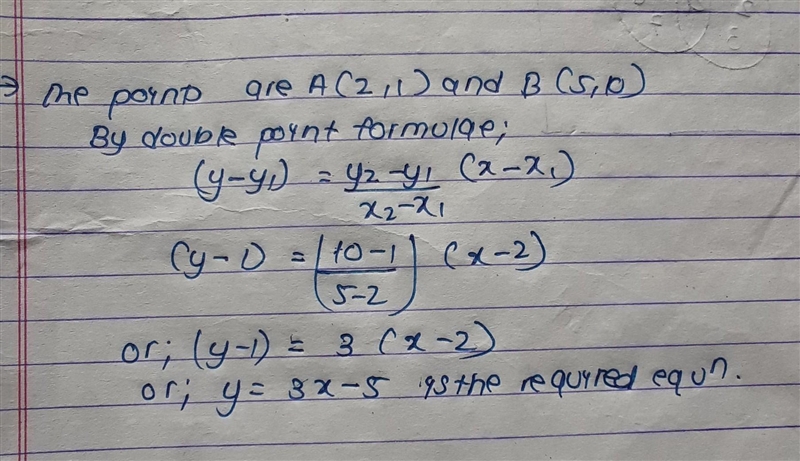 → The points are A(2,1) and B(5,10)
By double point formulae;
(y-y₁) = y₂-y₁/x₂-x₁ (x-x₁)
(y-1) = (10-1/5-2) (x-2)
or; (y-1) = 3 (x-2)
or; y = 3x-5 is the required equn.